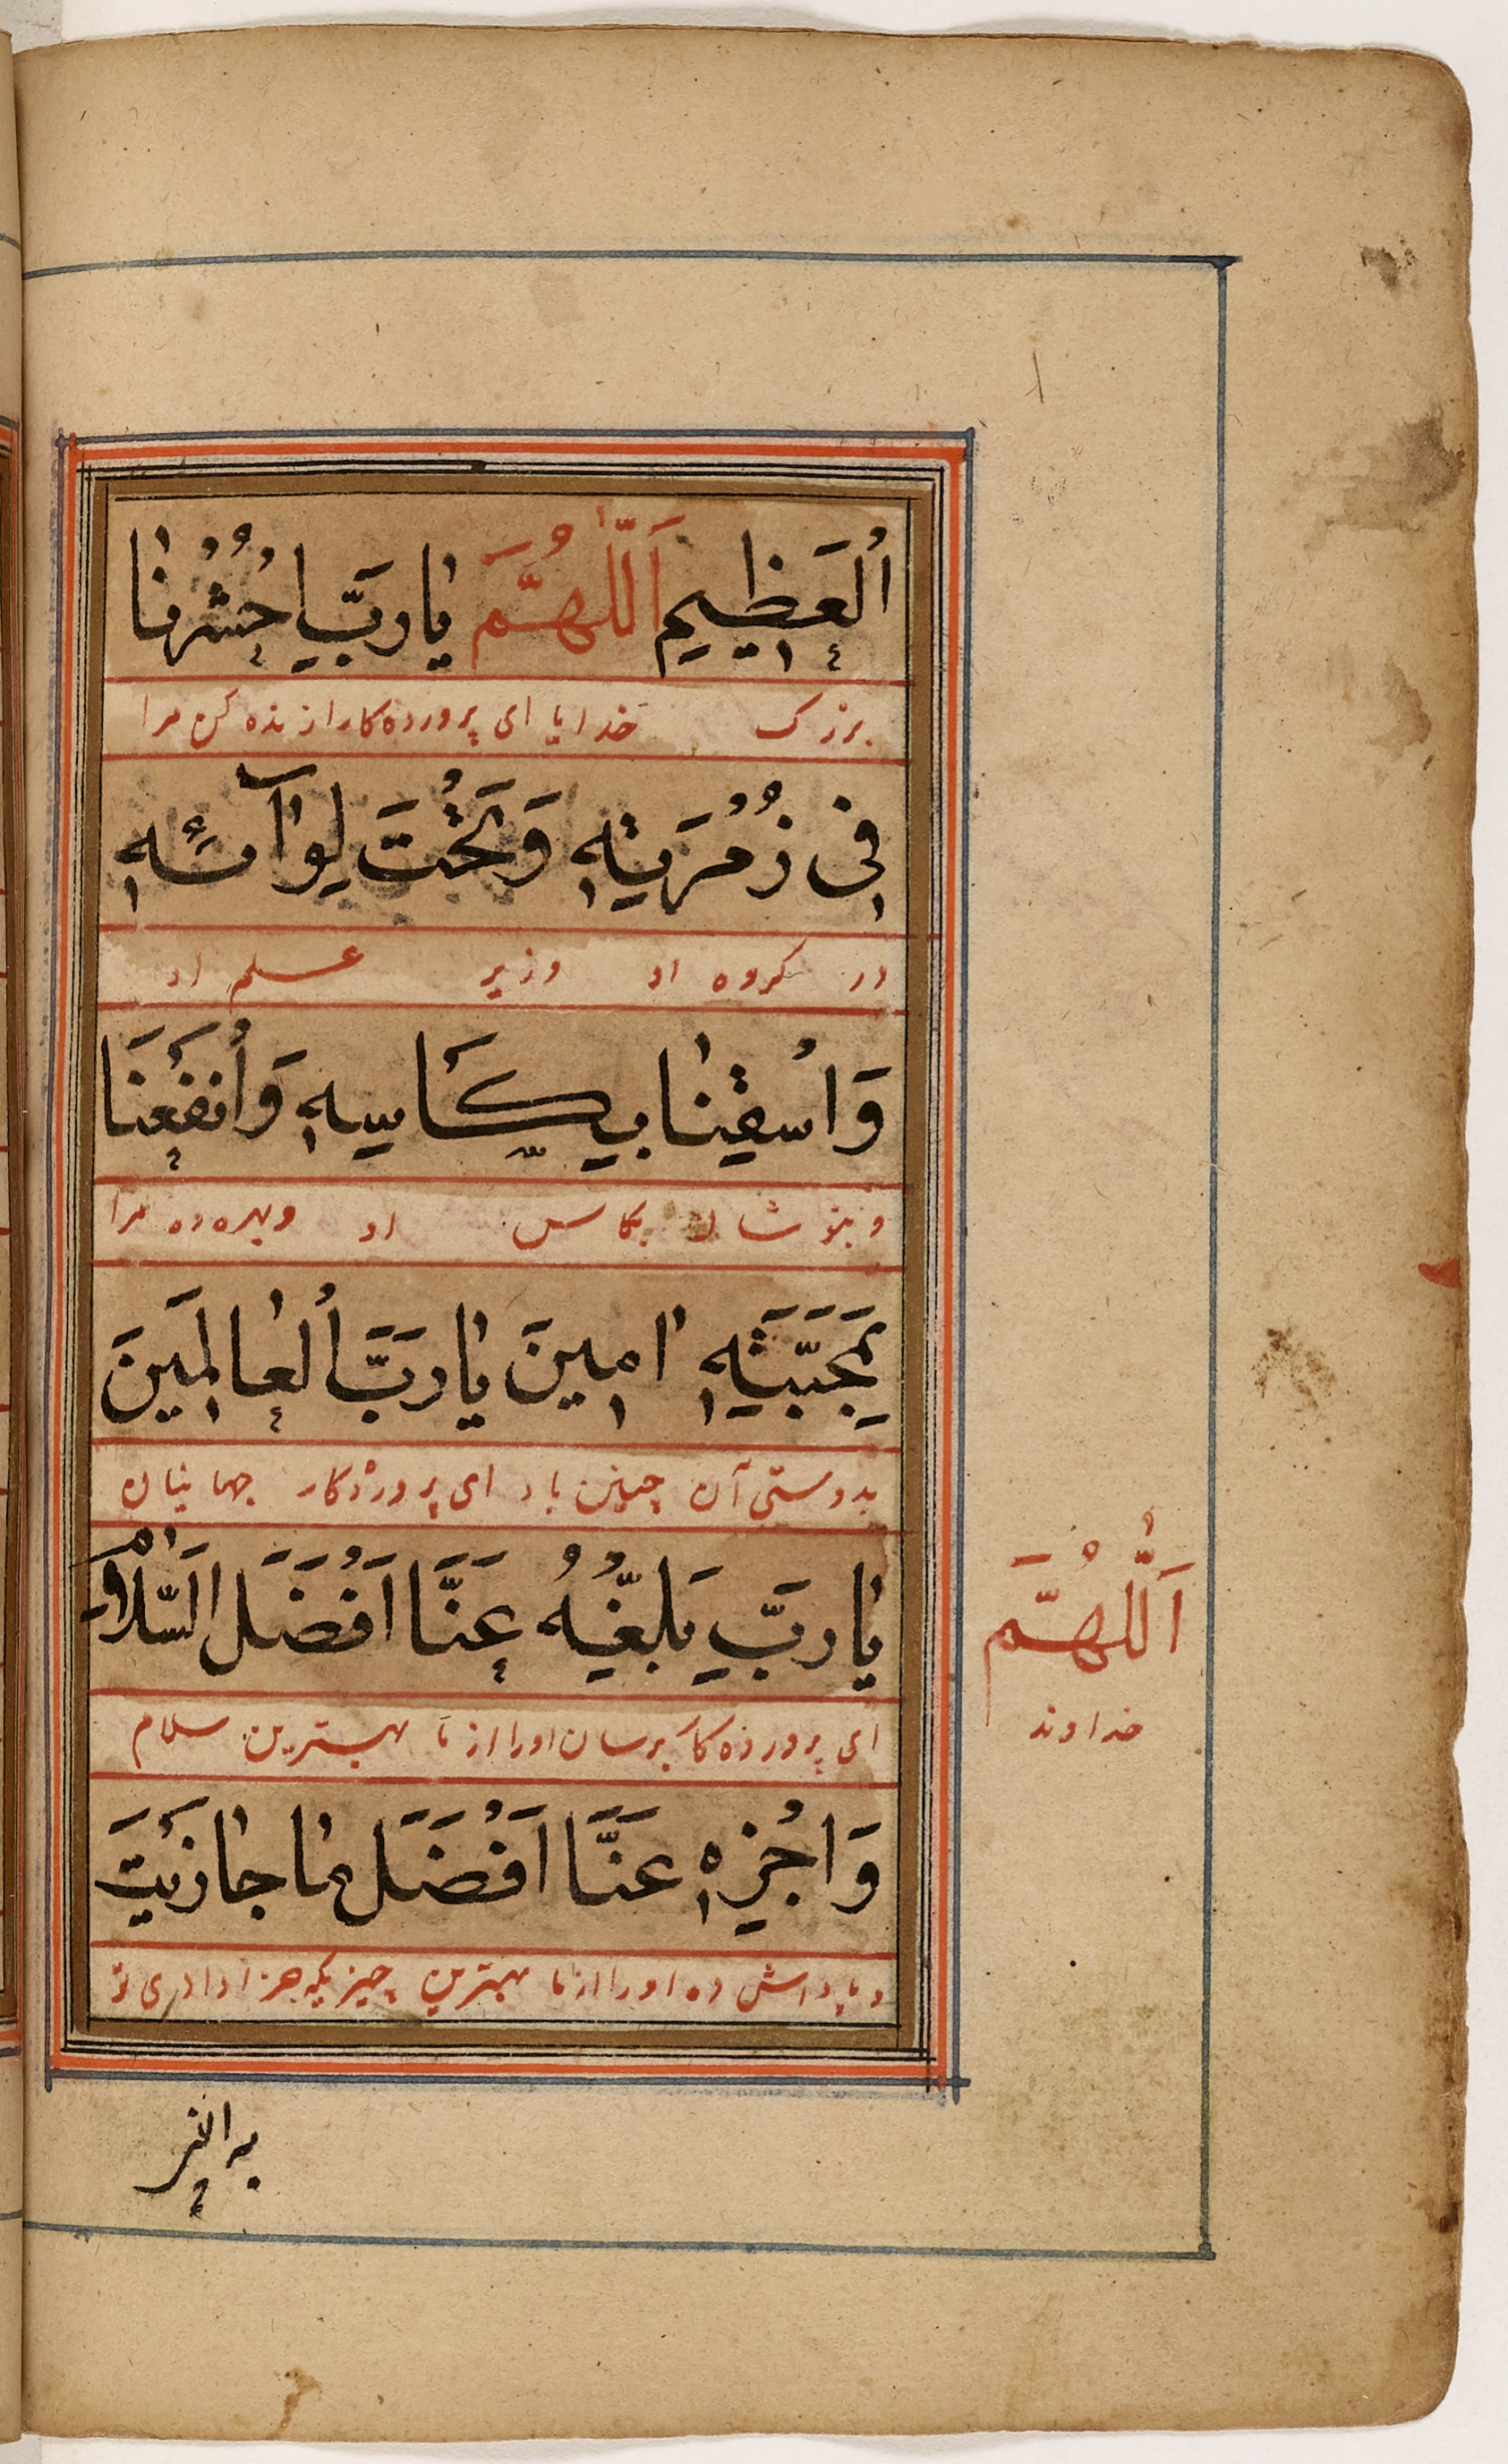 اُلعَظِيمِ اَللّٰهُمَّ يٰا رَبِّ احْشُرْنٰا
بزرک خدایا ای پرورده کار از نده کن مرا
فِی زُمْرَتِهِ وَتَحْتَ لِوٰآئِهِ
در کروه او وزیر علم او
وَاسْقِنٰا بِكَاسِهِ وَاُنفَعْنَا
و بنوشان بکاس او و بهره ده مرا
بِمَحَبَّتِهِ اٰمِينَ يٰا رَبَّ اُلعٰالَمِينَ
بدوستی آن چنین باد ای پروردکار جهانیان
يٰا رَبِّ بَلِّغْهُ عَنَّا اَفْضَلَ السَّلَامِ
ای پرورده کا برسان اورا از ما بهترین سلام
اَللّٰهُمَّ
خداوند
وَاجْزِهِ عَنَّا اَفْضَلَ مٰا جٰازَيْتَ
و پاداش ده اورا از ما بهترین چیزیکه جزا دادی تو
به النبی